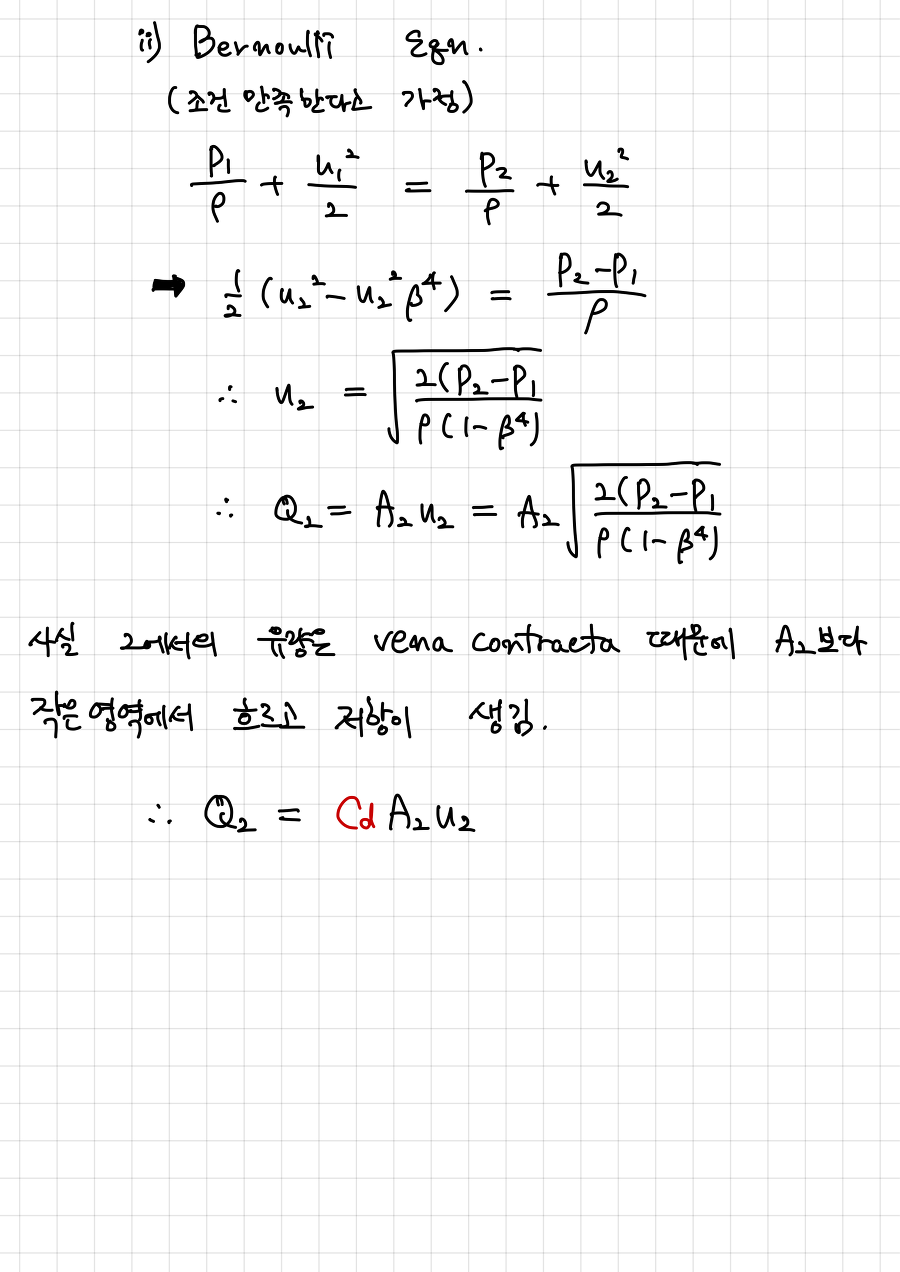 ii) Bernoulli Eqn.
(조건 만족한다고 가정)
P₁/ρ + u₁²/2 = P₂/ρ + u₂²/2
➡ 1/2 (u₂² - u₂²β⁴) = (P₂-P₁)/ρ
∴ u₂ = √(2(P₂-P₁ / ρ(1-β⁴))
∴ Q₂ = A₂u₂ = A₂√(2(P₂-P₁ / ρ(1-β⁴))
사실 2에서의 유량은 vena contracta 때문에 A₂보다
작은 영역에서 흐르고 저항이 생김.
∴ Q₂ = Cd A₂ u₂